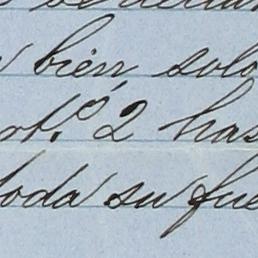 bien, solo
art.º 2 has
toda su fue